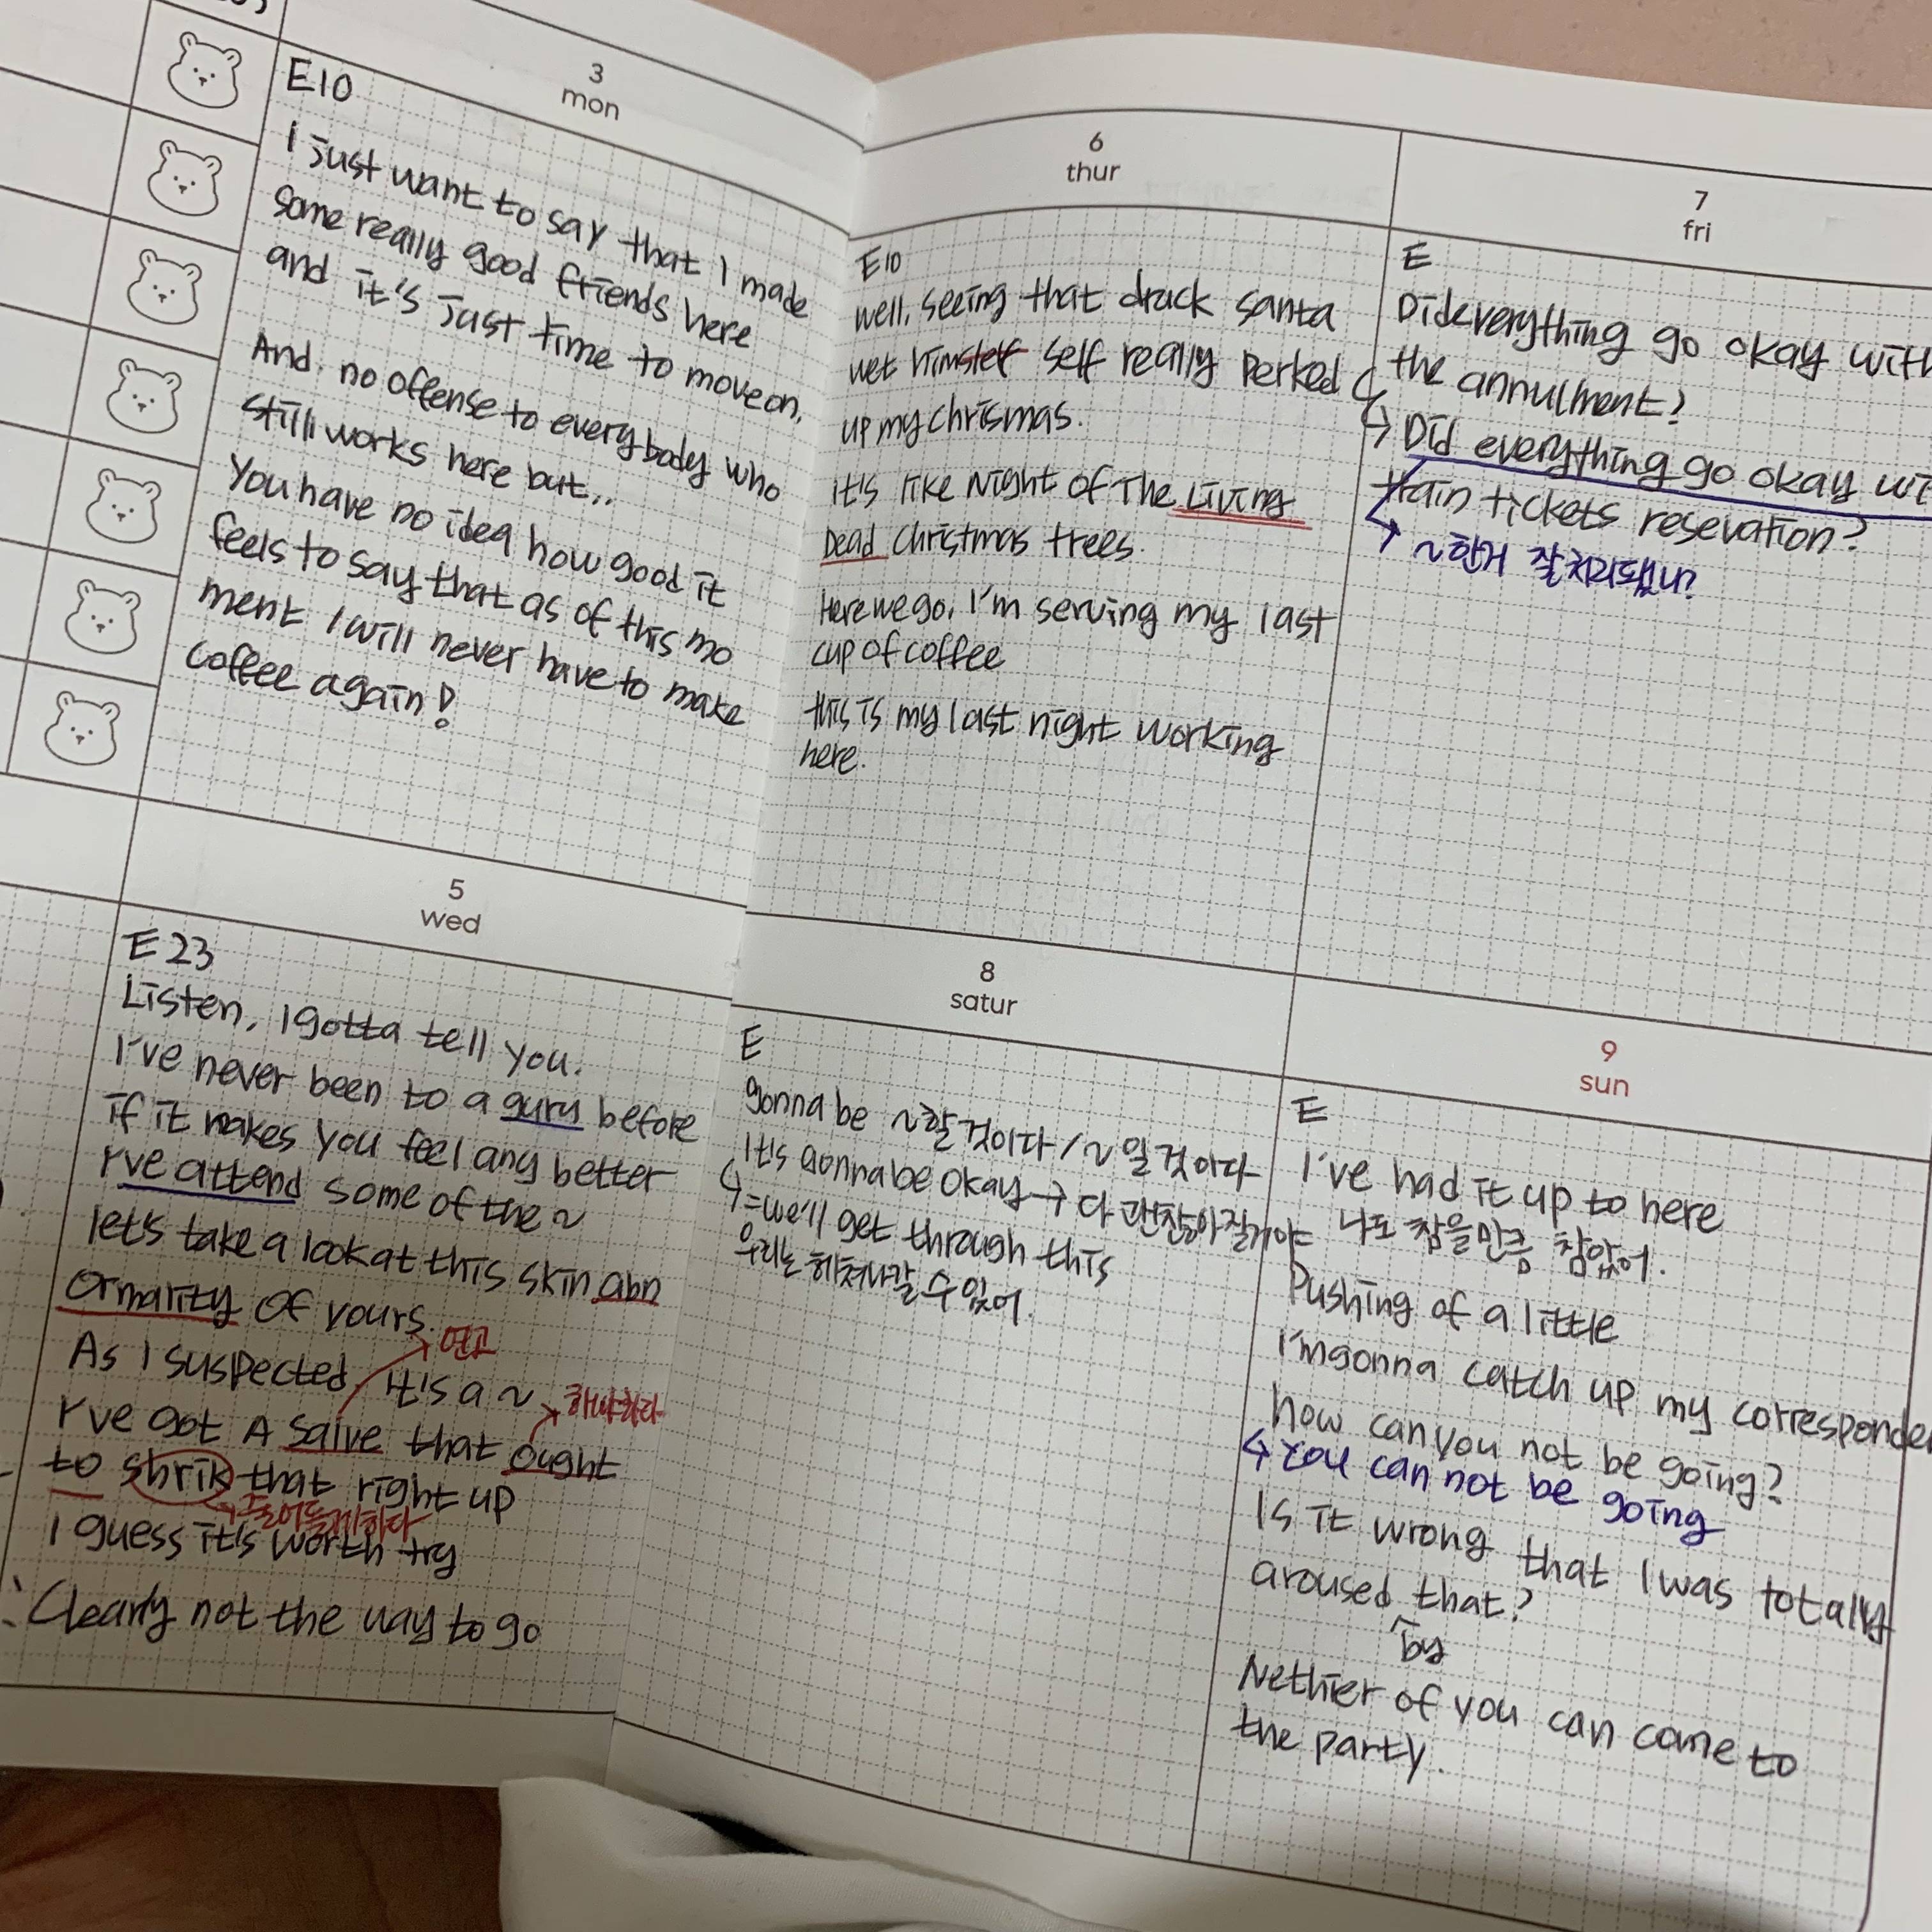 3
mon
E10
I just want to say that I made
some really good friends here
and it's just time to move on.
And. no offense to everybody who
still works here but..
You have no idea how good it
feels to say that as of this mo
ment I will never have to make
coffee again!
5
wed
E 23
Listen, I gotta tell you.
I've never been to a guru before
if it makes you feel any better
I've attend some of the ~
let's take a look at this skin abn
ormarity of yours.
연고
As I suspected, it's a ~
해야하다
I've got A salve that ought
to shrik that right up
줄어들게하다
I guess it's worth try
Clearly not the way to go
6
thur
E10
well, seeing that druck santa
wet himslelf self really Perked
up my chrismas.
it's like Night of The Living
Dead Christmas trees.
Here we go, I'm serving my last
cup of coffee
this is my last night working
here.
7
fri
E
Dideverything go okay with
the annulment?
Did everything go okay wi
train tickets resevation?
~한거 잘 처리됐나?
8
satur
E
gonna be ~할 것이다 / ~일 것이다
It's gonna be okay → 다 괜찮아질거야
=we'll get through this
우리는 헤쳐나갈 수 있어.
9
sun
E
I've had it up to here
나도 참을만큼 참았어.
Pushing of a little
I'm gonna catch up my corresponde
how can you not be going?
You can not be going
Is it wrong that I was totally
aroused that?
by
Nethier of you can come to
the party.